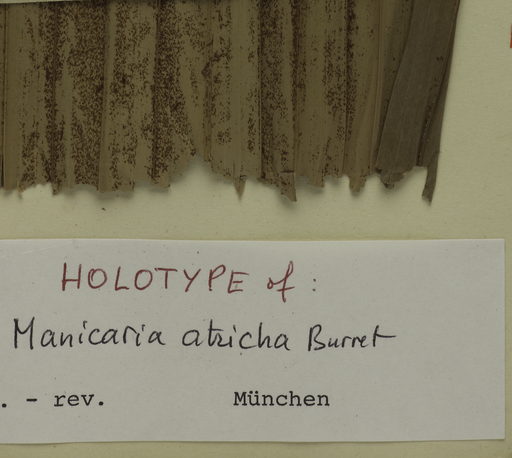 HOLOTYPE of :
Manicaria atricha Burret
. - rev. München